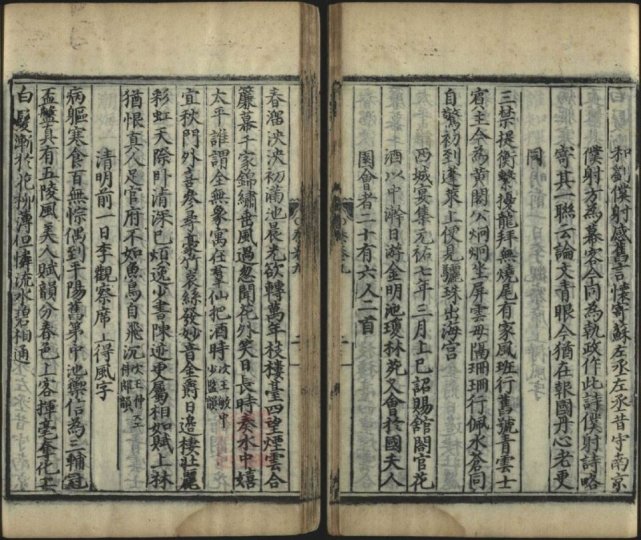 和劉僕射感舊言懷寄蘇左丞左丞昔守南京
僕射方為幕客今同為執政作此詩僕射詩略
寄其一聯云論文青眼今猶在報國丹心老更
同
三禁提衡繫接龍拜無燒尾有家風班行舊號青雲士
賓主今為黃閣公炯炯坐屏雲母隔珊珊行佩水蒼同
自驚初到蓬萊上便見驪珠出海宮
西城宴集元祐七年三月上巳詔賜館閣官花
酒以中澣日游金明池瓊林苑又會於國夫人
園會者二十有六人二首
春溜泱泱初滿池晨光欲轉萬年枝樓臺四望煙雲合
簾幕千家錦繡垂風過忽聞花外笑日長時奏水中嬉
太平誰謂全無象寓在羣仙把酒時次王敏中少監韻
宜秋門外喜參尋豪竹哀絲發妙音金爵日邊棲壯麗
彩虹天際卧清深已煩逸少書陳迹更屬相如賦上林
猶恨真人足官府不如魚鳥自飛沉次王仲至侍郎韻
清明前一日李觀察席上得風字
病軀寒食百無悰偶到平陽舊第中池籞信為三輔冠
盃盤真有五陵風美人賦韻分春色上客揮毫奪化工
白髮漸於花柳薄但憐流水碧相通